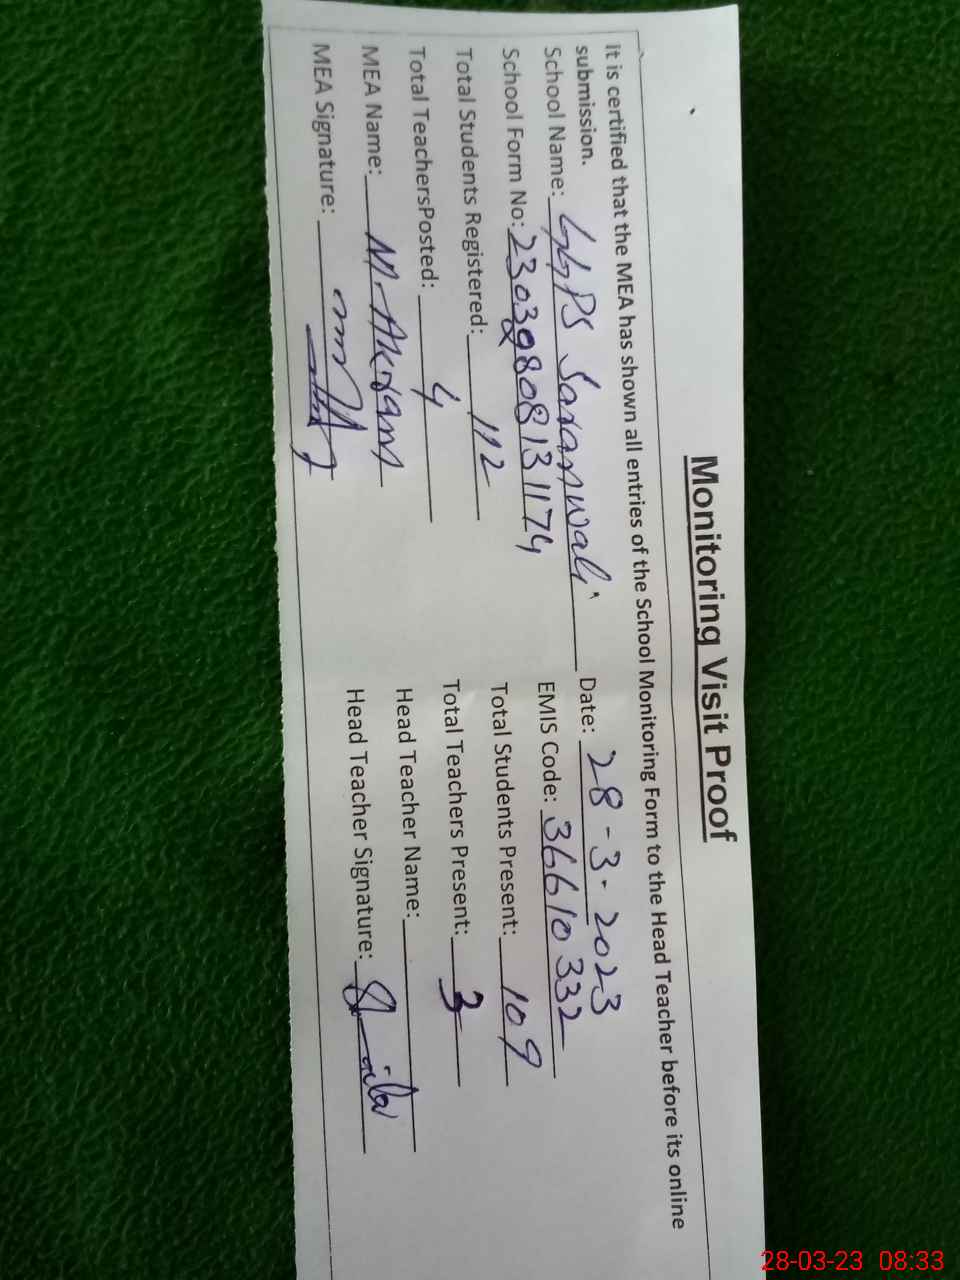 Monitoring Visit Proof
It is certified that the MEA has shown all entries of the School Monitoring Form to the Head Teacher before its online
submission.
School Name: GGPS Saranwali Date: 28-3-2023
School Form No: 23039808131174 EMIS Code: 36610332
Total Students Registered: 112 Total Students Present: 109
Total TeachersPosted: 4 Total Teachers Present: 3
MEA Name: M. Akram Head Teacher Name:
MEA Signature: Head Teacher Signature:
28-03-23 08:33